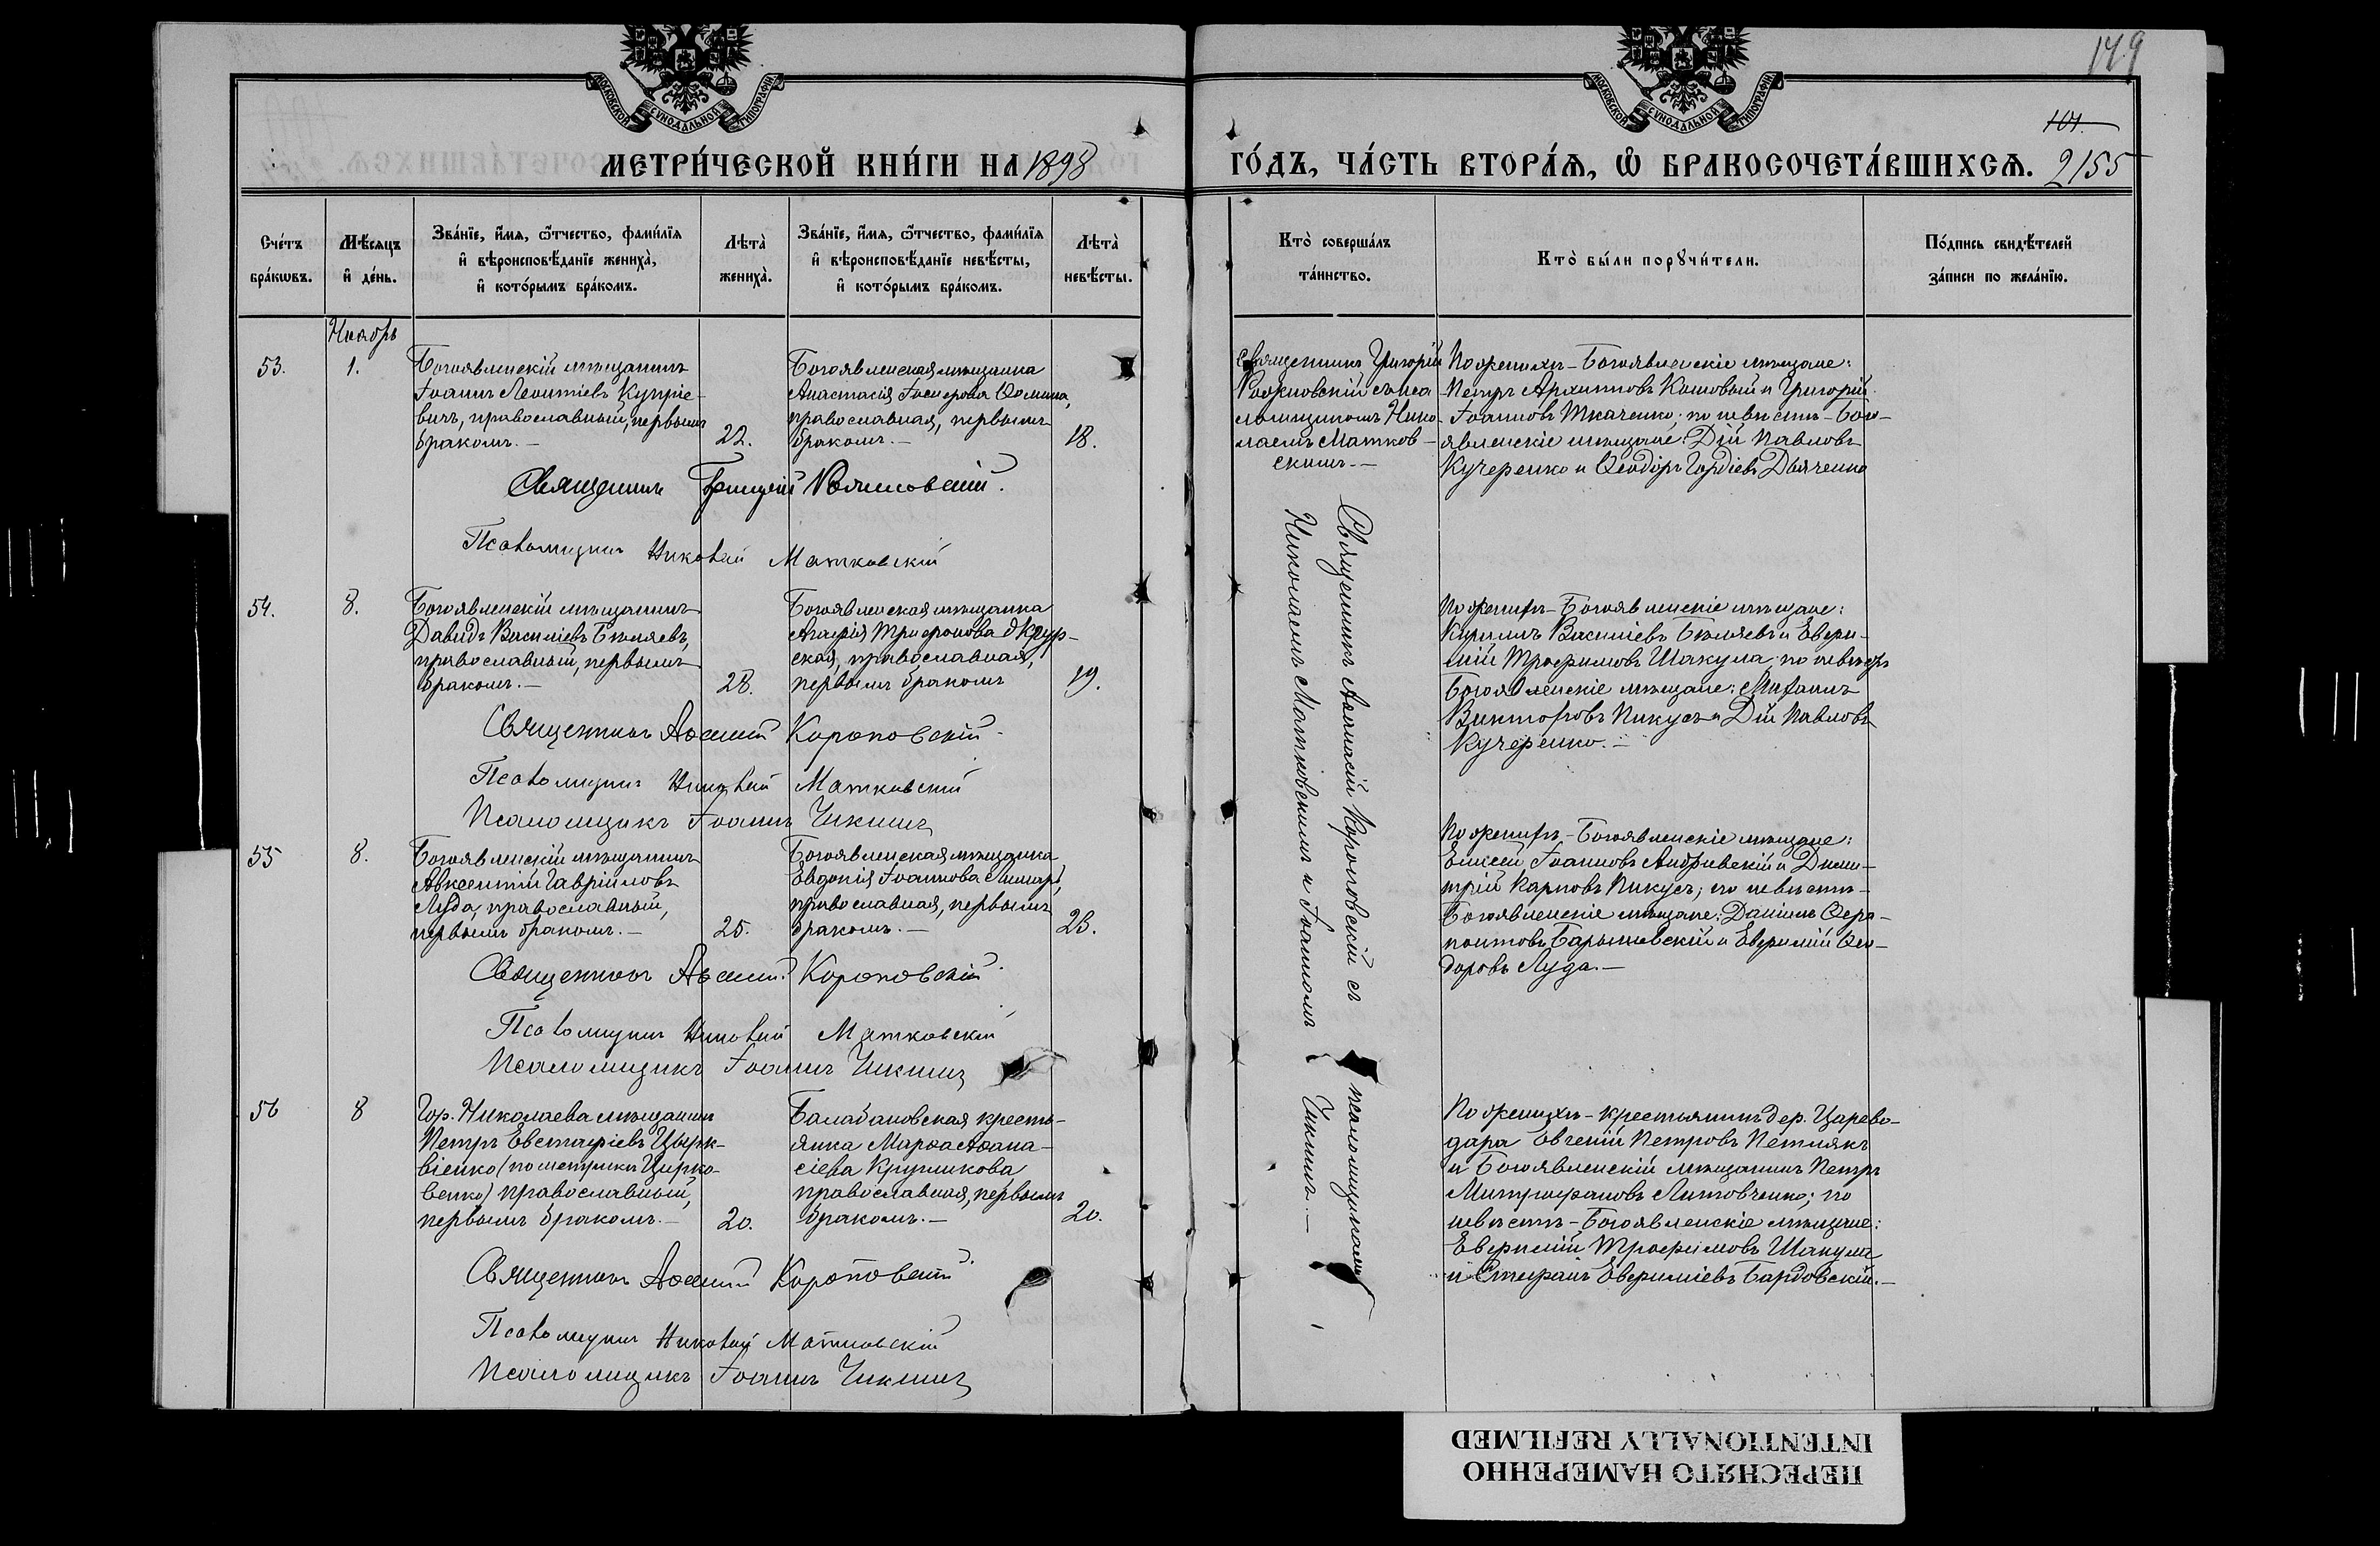 МОСКОВСКОЙ СУНОДАЛЬНОЙ ТИПОГРАФІИ
МЕТРИ́ЧЕСКОЙ КНИ́ГИ НА 1898
МОСКОВСКОЙ СУНОДАЛЬНОЙ ТИПОГРАФІИ
149
101.
ГО́ДЪ, ЧА́СТЬ ВТОРА́Ѧ, Ѽ БРАКОСОЧЕТА́ВШИХСѦ. 2155
Сче́тъ
бра́кѡвъ.
Мѣ́сяцъ
и҆ де́нь.
Зва́нїе, и҆́мя, ѻ҆́тчество, фами́лїя
и҆ вѣроисповѣ́данїе жениха̀,
и҆ кото́рымъ бра́комъ.
Лѣта̀
жениха̀.
Зва́нїе, и҆́мя, ѻ҆́тчество, фами́лїя
и҆ вѣроисповѣ́данїе невѣ́сты,
и҆ кото́рымъ бра́комъ.
Лѣта̀
невѣ́сты.
Кто̀ соверша́лъ
та́инство.
Кто̀ бы́ли порꙋчи́тели.
По́дпись свидѣ́телей
за́писи по жела́нїю.
Ноябрь
53.
1.
Богоявленскій мѣщанинъ
Іоаннъ Леонтіевъ Купріе-
вичъ, православный, первымъ
бракомъ.—
22.
Богоявленская мѣщанка
Анастасія Іосифова Ѳомина,
православная, первымъ
бракомъ.—
18.
Священникъ Григорій
Рожновскій съ пса
ломщикомъ Нико-
лаемъ Матков-
скимъ.—
По женихѣ - Богоявленскіе мѣщане:
Петръ Архиповъ Кошовый и Григорій
Іоанновъ Ткаченко; по невѣстѣ - Бого-
явленскіе мѣщане: Дій Павловъ
Кучеренко и Ѳеодоръ Гордіевъ Дьяченко
Священникъ Григорій Рожновскій.
Псаломщикъ Николай Матковскій
Священникъ Аѳанасій Короповскій съ псаломщиками
Николаемъ Матковскимъ и Іоанномъ Чикинъ.—
54.
8.
Богоявленскій мѣщанинъ
Давидъ Василіевъ Бѣляевъ,
православный, первымъ
бракомъ.—
28.
Богоявленская мѣщанка
Агафія Трифонова
ская, православная,
первымъ бракомъ
19.
По женихѣ - Богоявленскіе мѣщане:
Кириллъ Василіевъ Бѣляевъ и Евфи-
мій Трофимовъ Шакула; по невѣстѣ
Богоявленскіе мѣщане: Михаилъ
Викторовъ Пикусъ и Дій Павловъ
Кучеренко.—
Священникъ Аѳанасій Короповскій
Псаломщикъ Николай Матковскій
Псаломщикъ Іоаннъ Чикинъ
55
8.
Богоявленскій мѣщанинъ
Авксентій Гавріиловъ
Луда, православный,
первымъ бракомъ.—
25.
Богоявленская мѣщанка
Евдокія Іоаннова
православная, первымъ
бракомъ.—
23.
По женихѣ - Богоявленскіе мѣщане:
Елисей Іоанновъ Андріевскій и Дими-
трій Карповъ Пикусъ; по невѣстѣ -
Богоявленскіе мѣщане: Даніилъ Ѳера-
понтовъ Барышевскій и Евфимій Ѳео-
доровъ Луда.—
Священникъ Аѳанасій Короповскій
Псаломщикъ Николай Матковскій
Псаломщикъ Іоаннъ Чикинъ
56
8
Гор. Николаева мѣщанинъ
Петръ Евстафіевъ Цырк-
віенко (по метрикѣ Цирко-
венко) православный,
первымъ бракомъ.—
20.
Балабановская кресть-
янка Марѳа Аѳана-
сіева Кругликова,
православная, первымъ
бракомъ.—
20.
По женихѣ - крестьянинъ дер. Царево-
дара Евгеній Петровъ Петлякъ
и Богоявленскій мѣщанинъ Петръ
Митрофановъ Литовченко; по
невѣстѣ - Богоявленскіе мѣщане:
Евфимій Трофимовъ Шакула
и Стефанъ Евфиміевъ Бардовскій.—
Священникъ Аѳанасій Короповскій
Псаломщикъ Николай Матковскій
Псаломщикъ Іоаннъ Чикинъ
ПЕРЕСНЯТО НАМЕРЕННО
INTENTIONALLY REFILMED